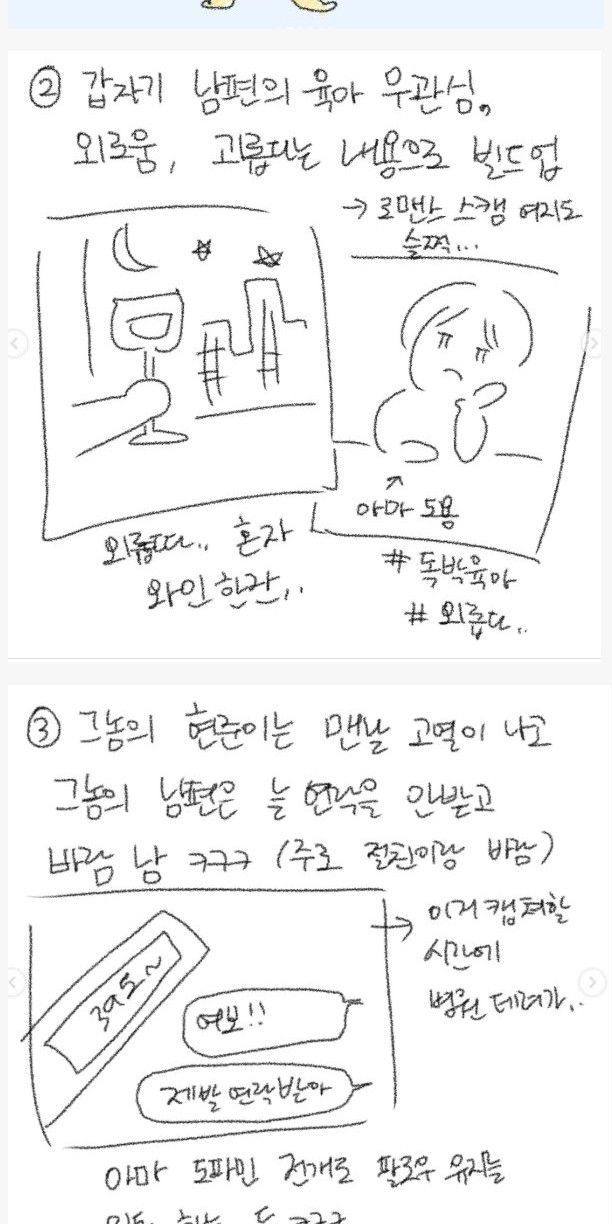 ② 갑자기 남편의 육아 무관심,
외로움, 괴롭다는 내용으로 빌드업
→ 로맨스 스캠 여지도
슬쩍...
외롭따.. 혼자
와인 한잔..
아마 도용
# 독박육아
# 외롭다..
③ 그놈의 현준이는 맨날 고열이 나고
그놈의 남편은 늘 연락을 안받고
바람 남 ㅋㅋㅋ (주로 절친이랑 바람)
→ 이거 캡쳐할
시간에
병원 데려가..
39도~
여보!!
제발 연락받아
아마 도파민 전개로 팔로우 유지를